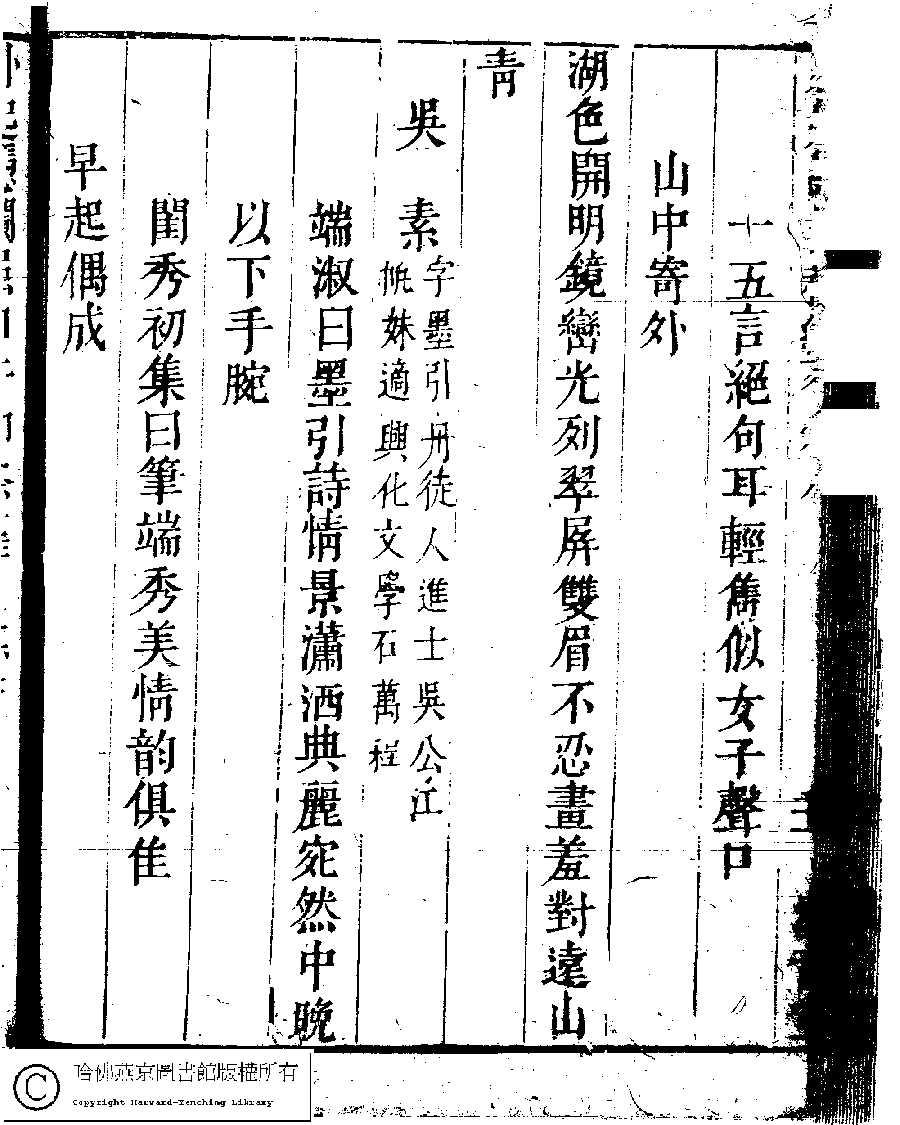 十五言絕句耳輕雋似女子聲口
山中寄外
湖色開明鏡巒光列翠屏雙眉不忍畫羞對遠山
青
吳素
字墨引丹徒人進士吳公江
妹適興化文學石萬程
端淑曰墨引詩情景瀟洒典麗宛然中晚
以下手腕
閨秀初集曰筆端秀美情韵俱佳
早起偶成
哈佛燕京圖書館版權所有
Copyright Harvard-Yenching Library